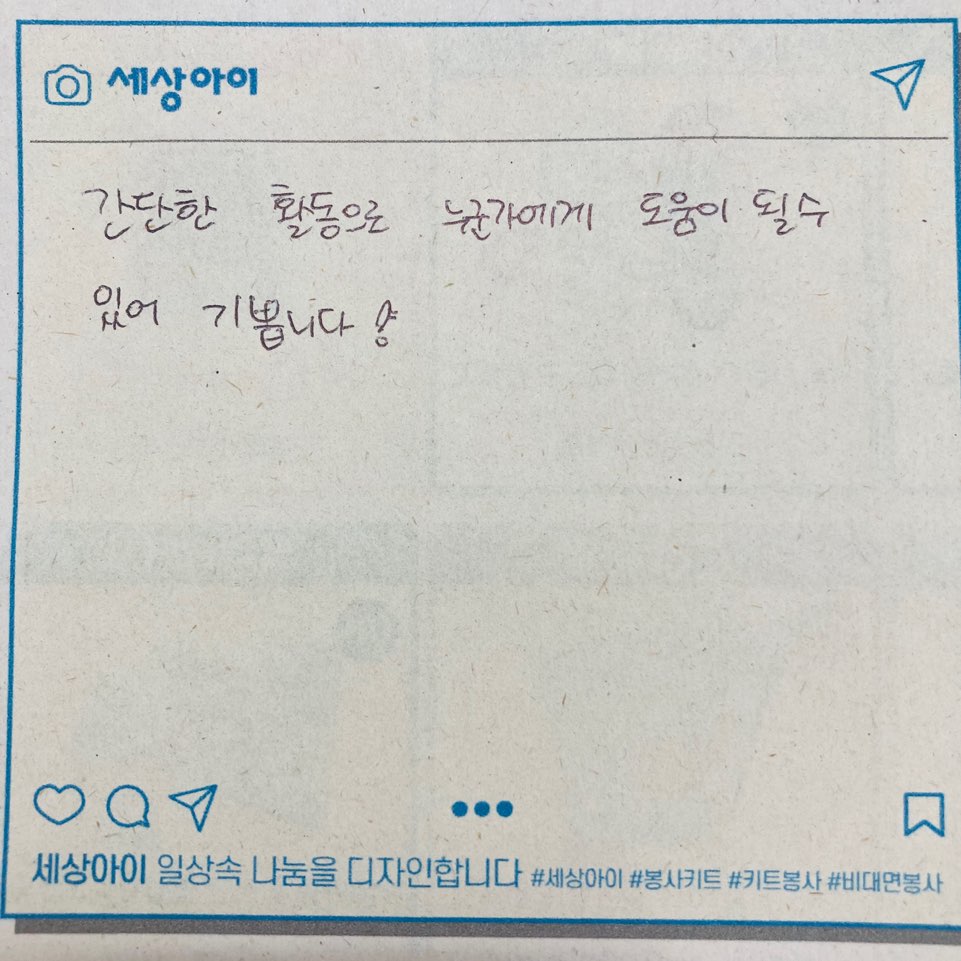 세상아이
간단한 활동으로 누군가에게 도움이 될 수
있어 기쁩니다
세상아이 일상속 나눔을 디자인합니다 #세상아이 #봉사키트 #키트봉사 #비대면봉사